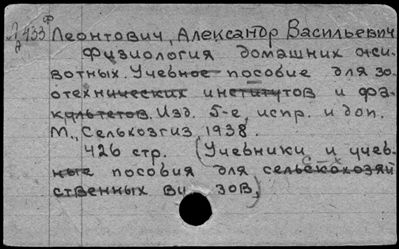 Л 433 Ф Леонтович, Александр Васильевич
д Физиология домашних жи-
вотных. Учебное пособие для зо-
отехнических институтов и фа-
культетов. Изд. 5-е, испр. и доп.
М., Сельхозгиз, 1938.
426 стр. (Учебники и учеб-
ные пособия для сельскохозяй
ственных ву зов)